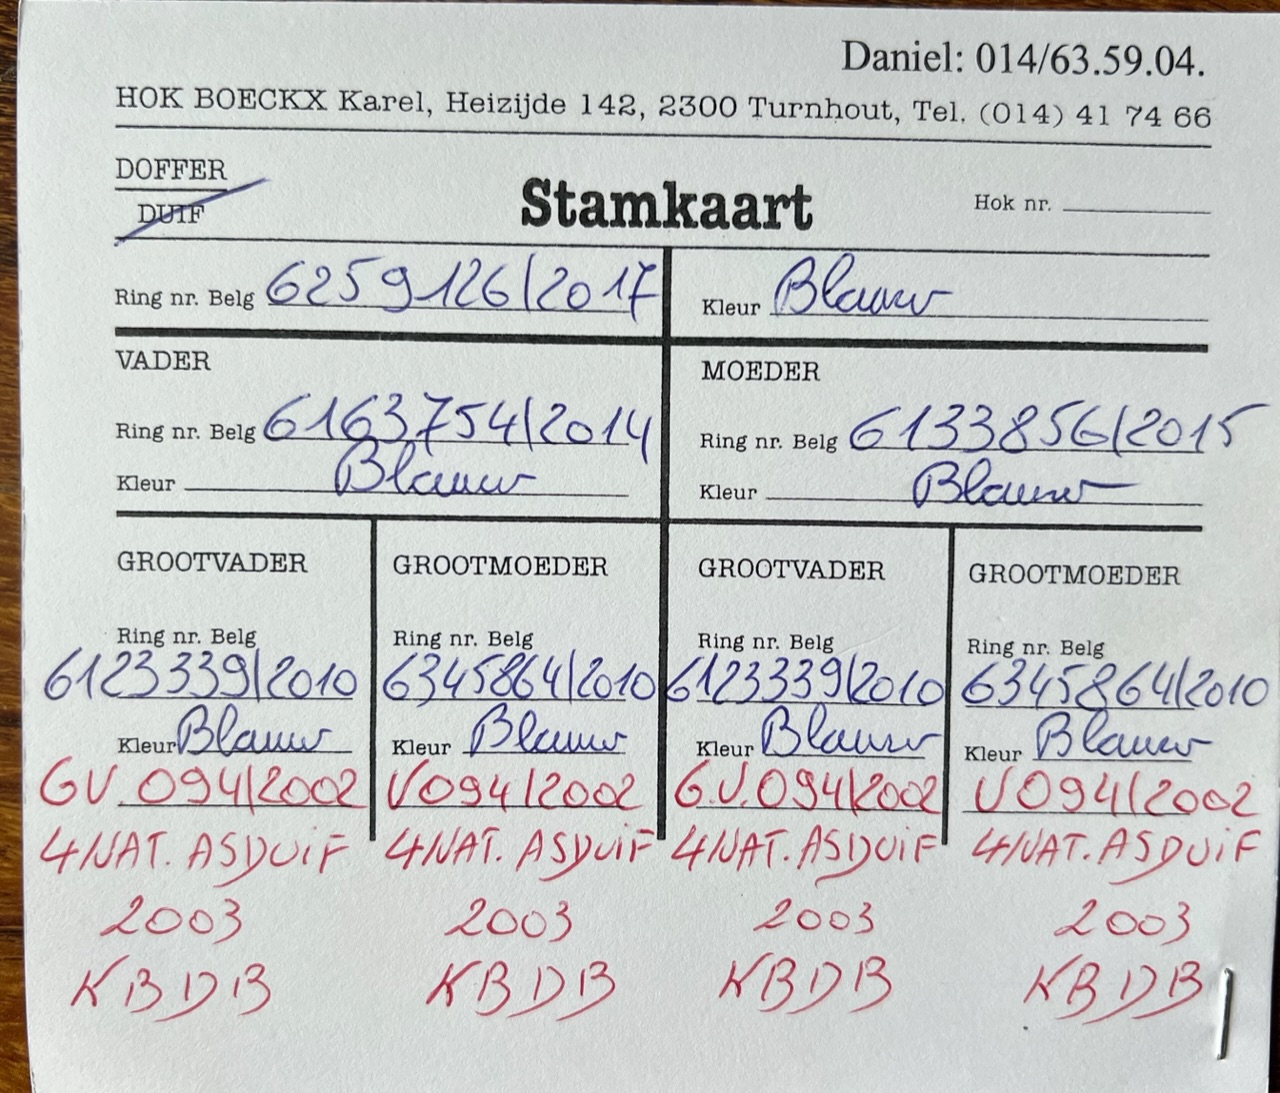 Daniel: 014/63.59.04.
HOK BOECKX Karel, Heizijde 142, 2300 Turnhout, Tel. (014) 41 74 66
DOFFER
DUIF
Stamkaart
Hok nr.
Ring nr. Belg 6259126/2017
Kleur Blauw
VADER
Ring nr. Belg 6163754/2014
Kleur Blauw
MOEDER
Ring nr. Belg 6133856/2015
Kleur Blauw
GROOTVADER
Ring nr. Belg
6123339/2010
Kleur Blauw
GV. 094/2002
4/NAT. ASDUiF
2003
KBDB
GROOTMOEDER
Ring nr. Belg
6345864/2010
Kleur Blauw
V094/2002
4/NAT. ASDUiF
2003
KBDB
GROOTVADER
Ring nr. Belg
6123339/2010
Kleur Blauw
G.V. 094/2002
4/NAT. ASDUiF
2003
KBDB
GROOTMOEDER
Ring nr. Belg
6345864/2010
Kleur Blauw
V094/2002
4/NAT. ASDUiF
2003
KBDB